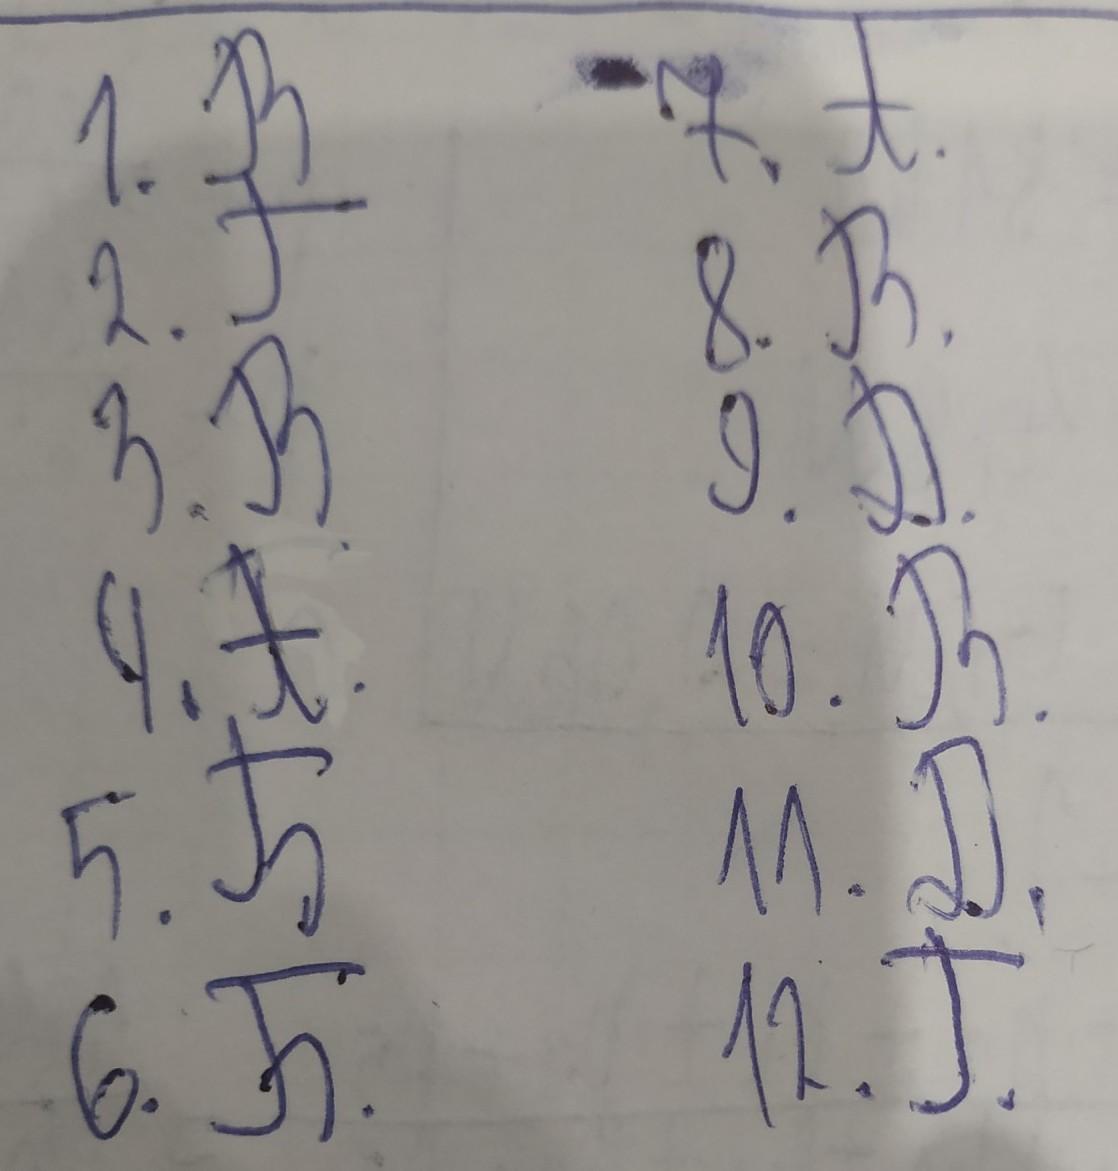 1. В
2. Г
3. В.
4. А.
5. Б
6. Б.
7. А.
8. В.
9. Д.
10. В.
11. Д.
12. Г.